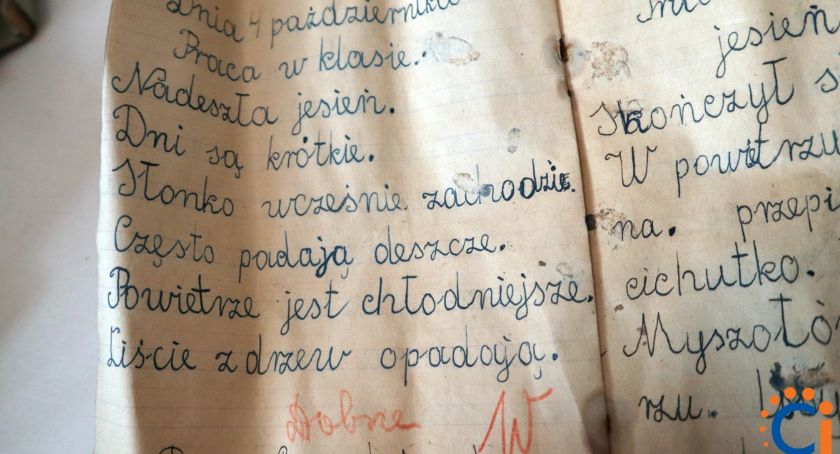 Dnia 4 października
Praca w klasie.
Nadeszła jesień.
Dni są krótkie.
Słonko wcześnie zachodzie.
Często padają deszcze.
Powietrze jest chłodniejsze.
Liście z drzew opadają.
Dobrze W
jesień
skończył s
W powietrzu
na. przepi
cichutko.
Myszołó
rzu.
Ci